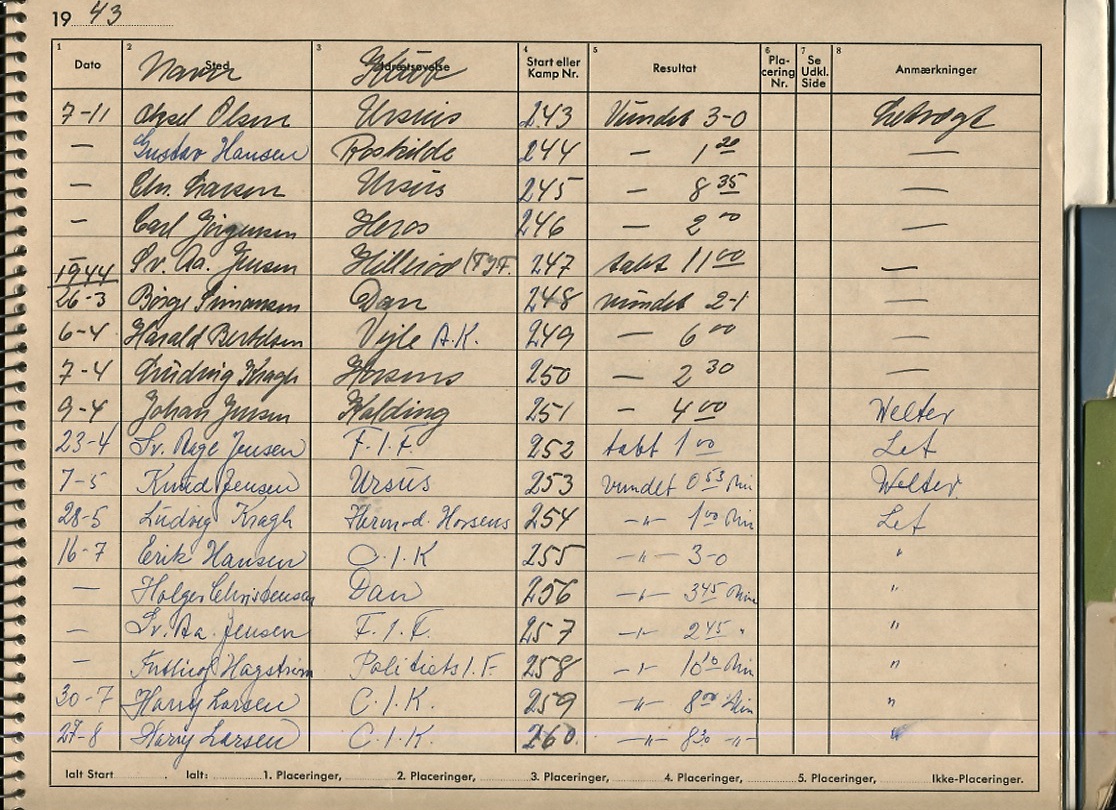 19 43
1 Dato 2 Sted Navn 3 Idrætsøvelse Klub 4 Start eller Kamp Nr. 5 Resultat 6 Pla-cering Nr. 7 Se Udkl. Side 8 Anmærkninger
7-11 Aksel Olsen Ursus 243 Vundet 3-0 Letvægt
— Gustav Hansen Roskilde 244 — 1 20 —
— Chr. Larsen Ursus 245 — 8 35 —
— Carl Jörgensen Heros 246 — 2 00 —
Sv. Aa. Jensen Hilleröd 247 tabt 11 00 —
1944
26-3 Börge Simonsen Dan 248 vundet 2-1 —
6-4 Harald Bertelsen Vejle A.K. 249 — 6 00 —
7-4 Ludvig Kragh Horsens 250 — 2 30 —
9-4 Johan Jensen Kolding 251 — 4 00 Welter
23-4 Sv. Aage Jensen F.I.F. 252 tabt 1 00 Let
7-5 Knud Jensen Ursus 253 vundet 0 53 Min Welter
28-5 Ludvig Kragh Hermod. Horsens 254 —"— 1 00 Min Let
16-7 Erik Hansen C.I.K 255 —"— 3-0 "
— Holger Christensen Dan 256 —"— 3 45 Min "
— Sv. Aa. Jensen F.I.F. 257 —"— 2 45 " "
— Hagström Politiets I.F. 258 —"— 10 10 Min "
30-7 Harry Larsen C.I.K. 259 —"— 8 00 Min "
27-8 Harry Larsen C.I.K. 260 —"— 8 30 —"— "
Ialt Start Ialt: 1. Placeringer, 2. Placeringer, 3. Placeringer, 4. Placeringer, 5. Placeringer, Ikke-Placeringer.